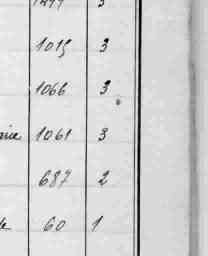 1015 3
1066 3
1061 3
687 2
60 1